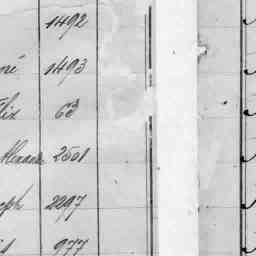 1492
né 1493
lix 63
Alexander 2501
eph 2297
is 977